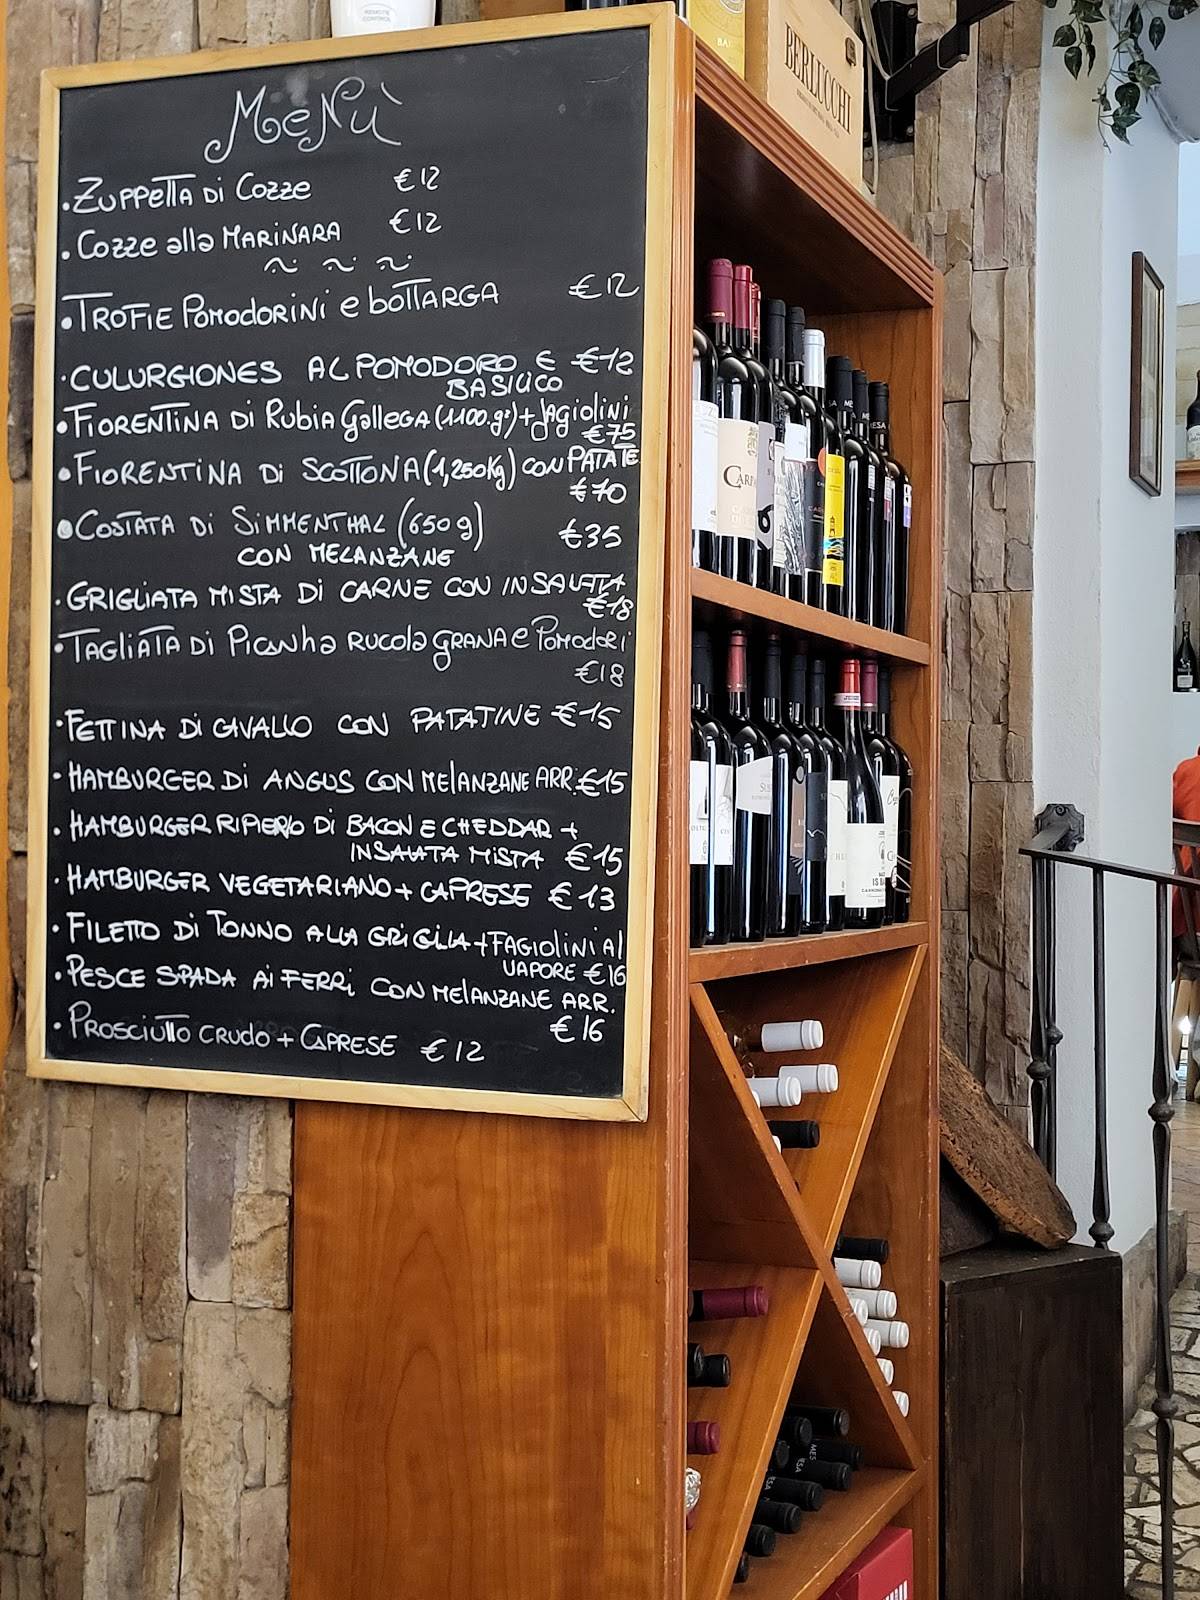 MeNù
. Zuppetta di Cozze €12
. Cozze alla Marinara €12
• Trofie Pomodorini e bottarga €12
. CULURGIONES AL POMODORO E €12
BASILICO
• Fiorentina di Rubia Gallega (1100.gr) + fagiolini
€75
• Fiorentina di Scottona (1,250Kg) con PATATE
€70
• Costata di Simmenthal (650 g) €35
CON MELANZANE
. GRIGLIATA MISTA DI CARNE CON INSALATA
€18
. Tagliata di Picanha rucola grana e Pomodori
€18
. FETTINA DI CAVALLO CON PATATINE €15
. HAMBURGER DI ANGUS CON MELANZANE ARR. €15
. HAMBURGER RIPIENO DI BACON E CHEDDAR +
INSALATA MISTA €15
. HAMBURGER VEGETARIANO + CAPRESE €13
. FILETTO DI TONNO ALLA GRIGLIA + FAGIOLINI Al
VAPORE €16
. PESCE SPADA AI FERRI CON MELANZANE ARR.
€16
. PROSCIUTTO CRUDO + CAPRESE €12
BERLUCCHI
REMOTE
CONTROL